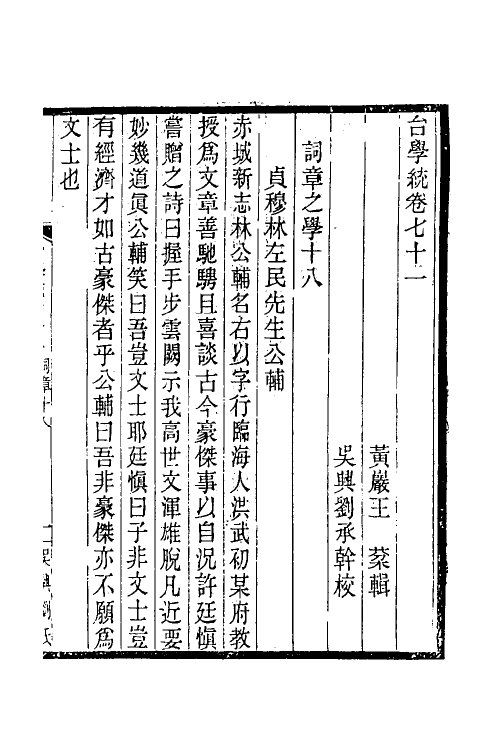 台學統卷七十二
黃巖王棻輯
吳興劉承幹校
詞章之學十八
貞穆林左民先生公輔
赤城新志林公輔名右以字行臨海人洪武初某府教
授爲文章善馳騁且喜談古今豪傑事以自況許廷愼
嘗贈之詩曰握手步雲闕示我高世文渾雄脫凡近要
妙幾道眞公輔笑曰吾豈文士耶廷愼曰子非文士豈
有經濟才如古豪傑者乎公輔曰吾非豪傑亦不願爲
文士也